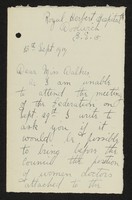 Royal Herbert Hospital
Woolwich
S.E.
6th Sept 1917
Dear Miss Walker
I am unable
to attend the meeting
of the Federation on
Sept. I write to
ask you if it
would be possible
to bring before the
Council the position
of women doctors
attached to the